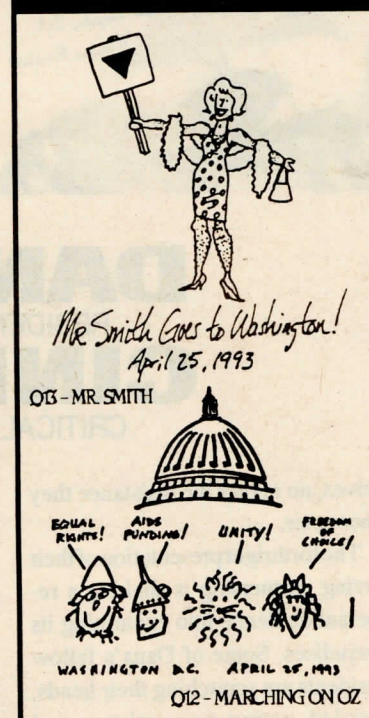 Mr Smith Goes to Washington!
April 25, 1993
Q13 - MR. SMITH
EQUAL RIGHTS!
AIDS FUNDING!
UNITY!
FREEDOM OF CHOICE!
WASHINGTON D.C. APRIL 25, 1993
Q12 - MARCHING ON OZ